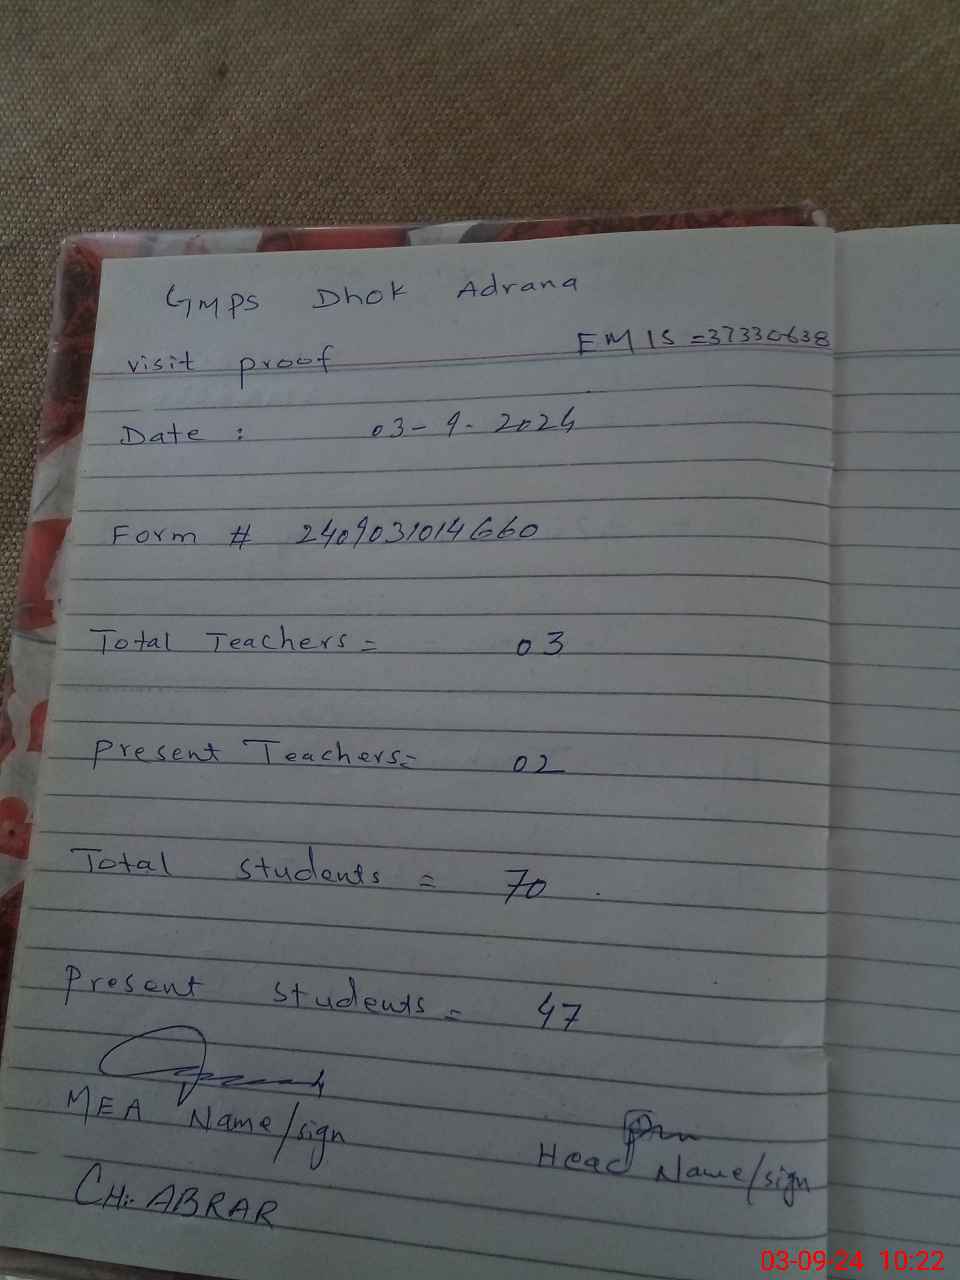 GMPS Dhok Adrana
EMIS =37330638
visit proof
Date : 03-9-2024
Form # 2409031014660
Total Teachers = 03
Present Teachers= 02
Total students = 70
Present students = 47
MEA Name/sign
Head Name/sign
CH: ABRAR
03-09-24 10:22